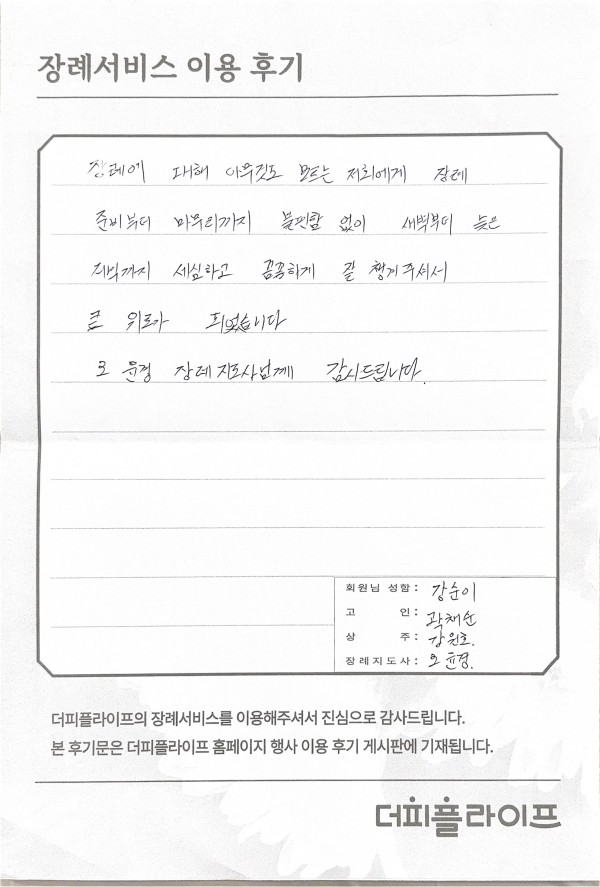 장례서비스 이용 후기
장례에 대해 아무것도 모르는 저희에게 장례
준비부터 마무리까지 불편함 없이 새벽부터 늦은
저녁까지 세심하고 꼼꼼하게 잘 챙겨주셔서
큰 위로가 되었습니다
오윤경 장례지도사님께 감사드립니다.
회원님 성함: 강순이
고 인: 곽채순
상 주: 강원호.
장례지도사: 오윤경.
더피플라이프의 장례서비스를 이용해주셔서 진심으로 감사드립니다.
본 후기문은 더피플라이프 홈페이지 행사 이용 후기 게시판에 기재됩니다.
더피플라이프